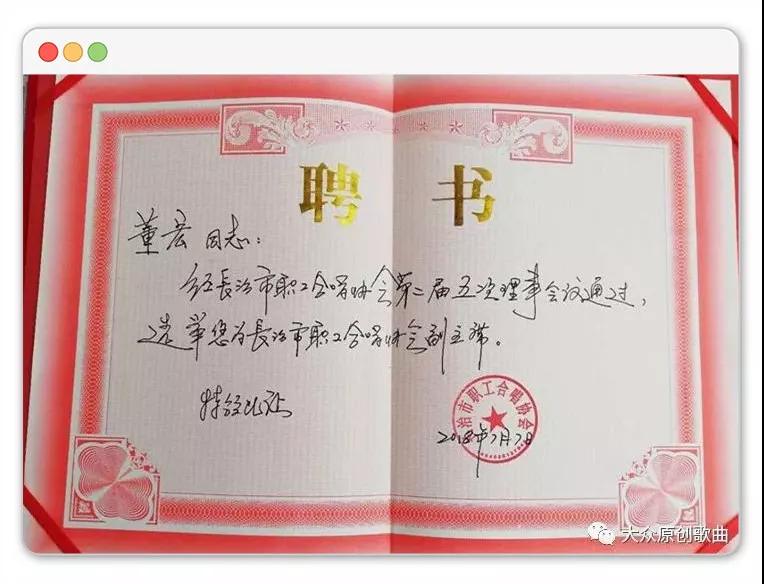 聘书
董宏 同志：
经長治市职工合唱协会第二届五次理事会议通过，
选举您为長治市职工合唱协会副主席。
特发此证
治市职工合唱协会
2018年7月7日
大众原创歌曲